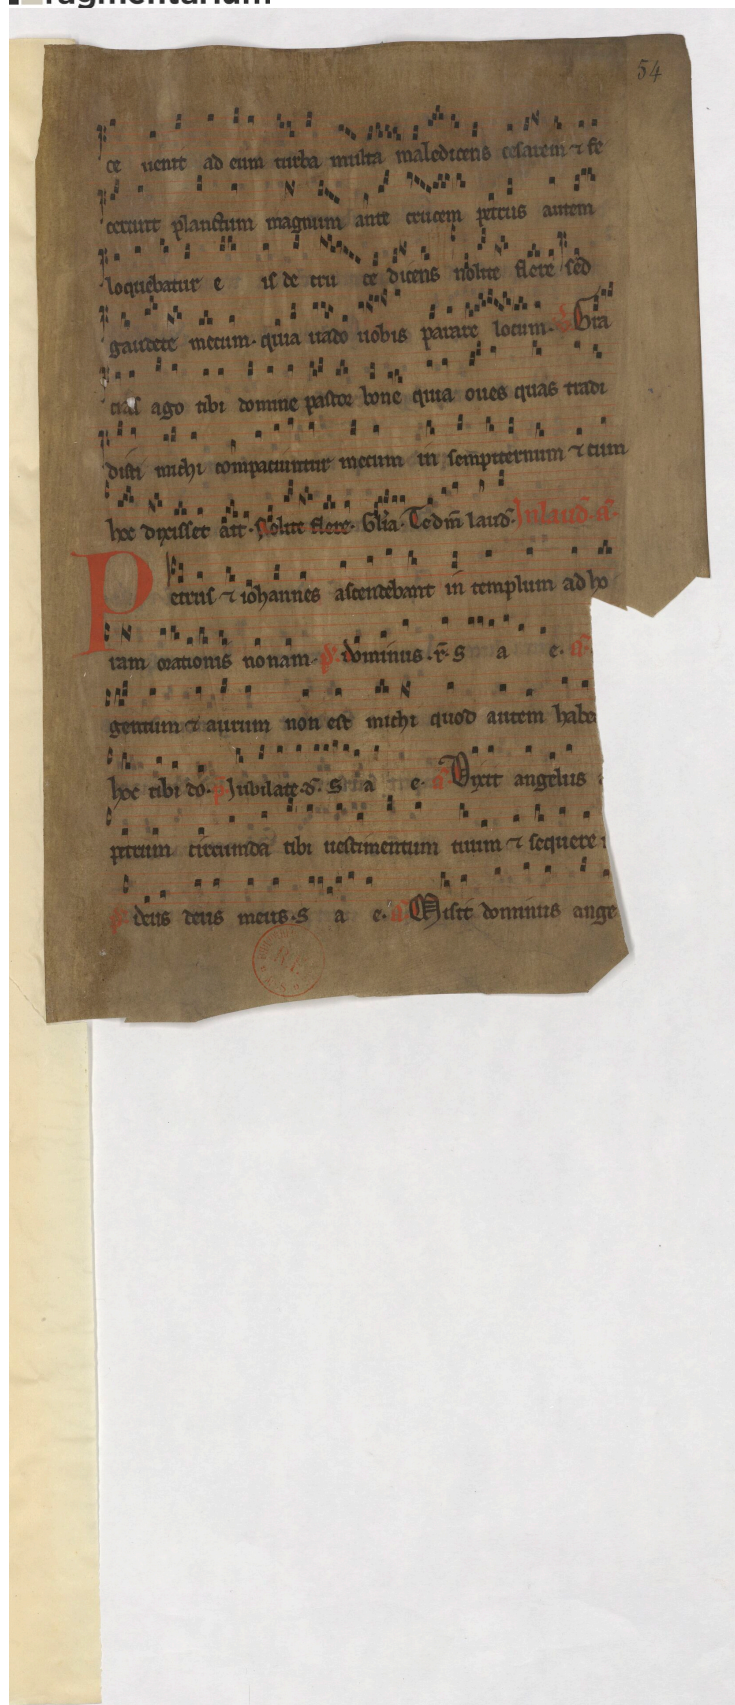 ragmentarium
54
ce uenit ad eum turba multa maledicens cesarem ⁊ fe
cerunt planctum magnum ante crucem petrus autem
loquebatur e is de cru ce dicens nolite flere sed
gaudete mecum. quia uado uobis parare locum. Gra
cias ago tibi domine pastor bone quia oues quas tradi
disti michi compaciuntur mecum in sempiternum ⁊ cum
hec dixisset ait. Nolite flere. Glia. Te dm̄ laud. In laud. a.
Petrus ⁊ iohannes ascendebant in templum ad ho
ram orationis nonam. p̄. dominus. r̄. S a e. a.
gentum ⁊ aurum non est michi quod autem habe
hoc tibi do. p̄. Iubilate. d. S a e. a Dixit angelus
petrum circumda tibi uestimentum tuum ⁊ sequere
p̄. deus deus meus. S a e. a Misit dominus ange